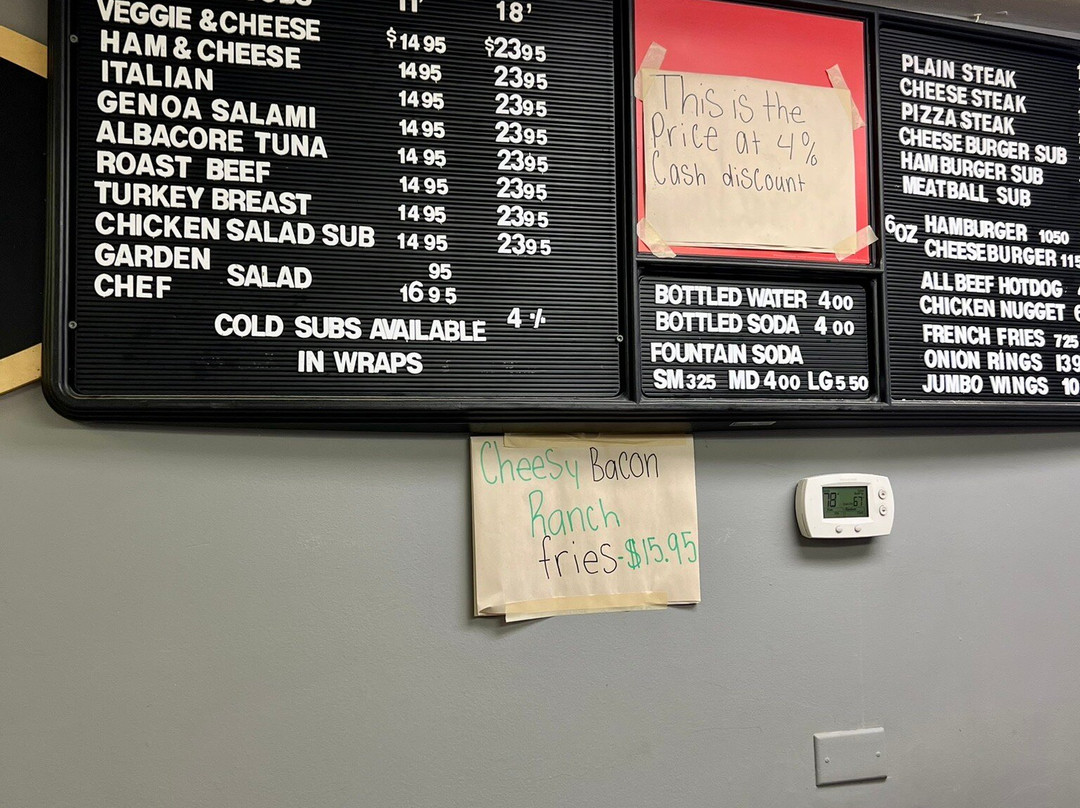 11' 18'
VEGGIE & CHEESE $1495 $2395
HAM & CHEESE 1495 2395
ITALIAN 1495 2395
GENOA SALAMI 1495 2395
ALBACORE TUNA 1495 2395
ROAST BEEF 1495 2395
TURKEY BREAST 1495 2395
CHICKEN SALAD SUB 1495 2395
GARDEN SALAD 95
CHEF 1695
COLD SUBS AVAILABLE 4%
IN WRAPS
This is the
Price at 4%
Cash discount
BOTTLED WATER 400
BOTTLED SODA 400
FOUNTAIN SODA
SM 325 MD 400 LG 550
PLAIN STEAK
CHEESE STEAK
PIZZA STEAK
CHEESE BURGER SUB
HAMBURGER SUB
MEATBALL SUB
6OZ HAMBURGER 1050
CHEESEBURGER 115
ALL BEEF HOTDOG
CHICKEN NUGGET 6
FRENCH FRIES 725
ONION RINGS 139
JUMBO WINGS 10
Cheesy Bacon
Ranch
fries-$15.95
78 67